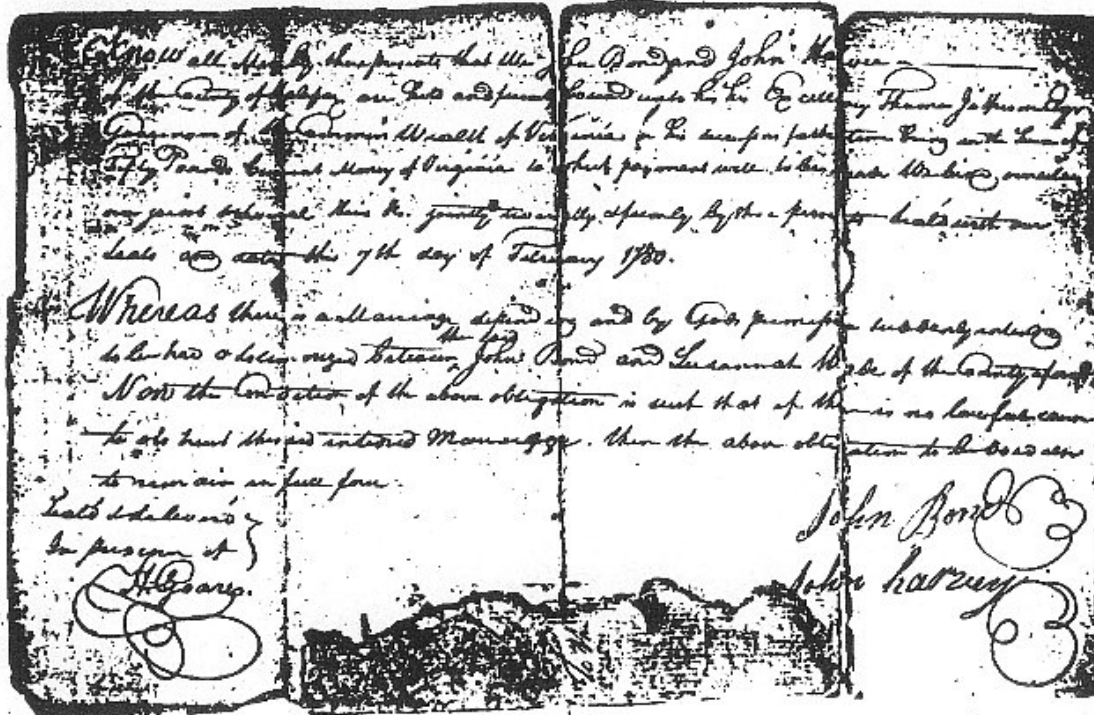 Know all Men by these presents that We John Bond and John Harvie
of the County of Halifax are held and firmly bound unto his his Excellency Thomas Jefferson Esqr
Governor of the Common Wealth of Virginia & his successors for the time being in the Sum of
Fifty Pounds Current Money of Virginia to which payment well to be made We bind ourselves
our joint & several firmly by these presents Seald with our
Seals and dated this 7th day of February 1780.
Whereas there is a Marriage depending and by Gods permission suddenly intended
to be had & solemnized between the said John Bond and Susannah Wade of the County aforesd
Now the Condition of the above obligation is such that if there is no lawful cause
to obstruct the said intended Marriage. then the above obligation to be void else
to remain in full force.
Seald & deliverd
In presence of
John Bond
John harvey